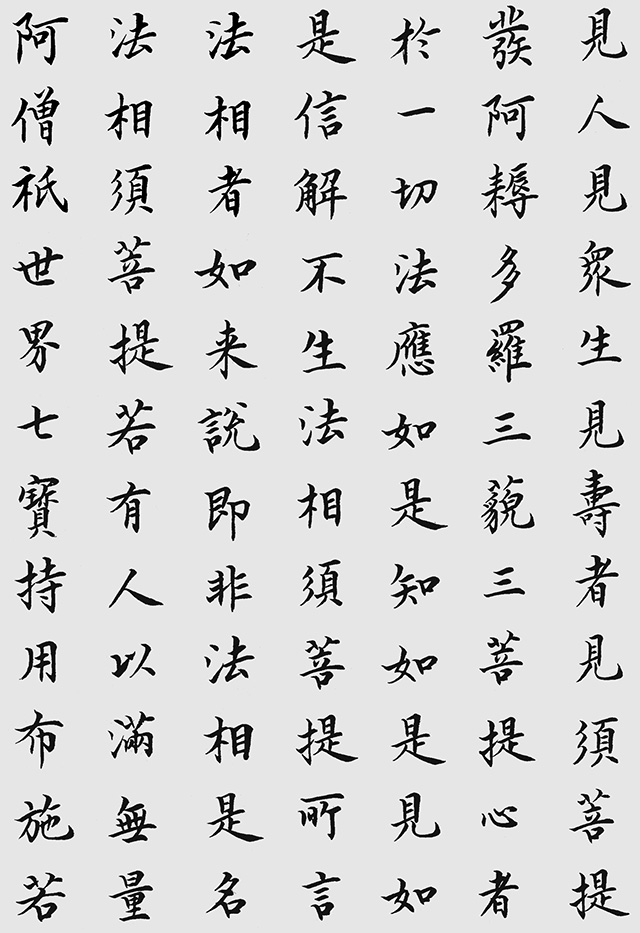 見人見衆生見壽者見須菩提
發阿耨多羅三藐三菩提心者
於一切法應如是知如是見如
是信解不生法相須菩提所言
法相者如来說即非法相是名
法相須菩提若有人以滿無量
阿僧祇世界七寶持用布施若